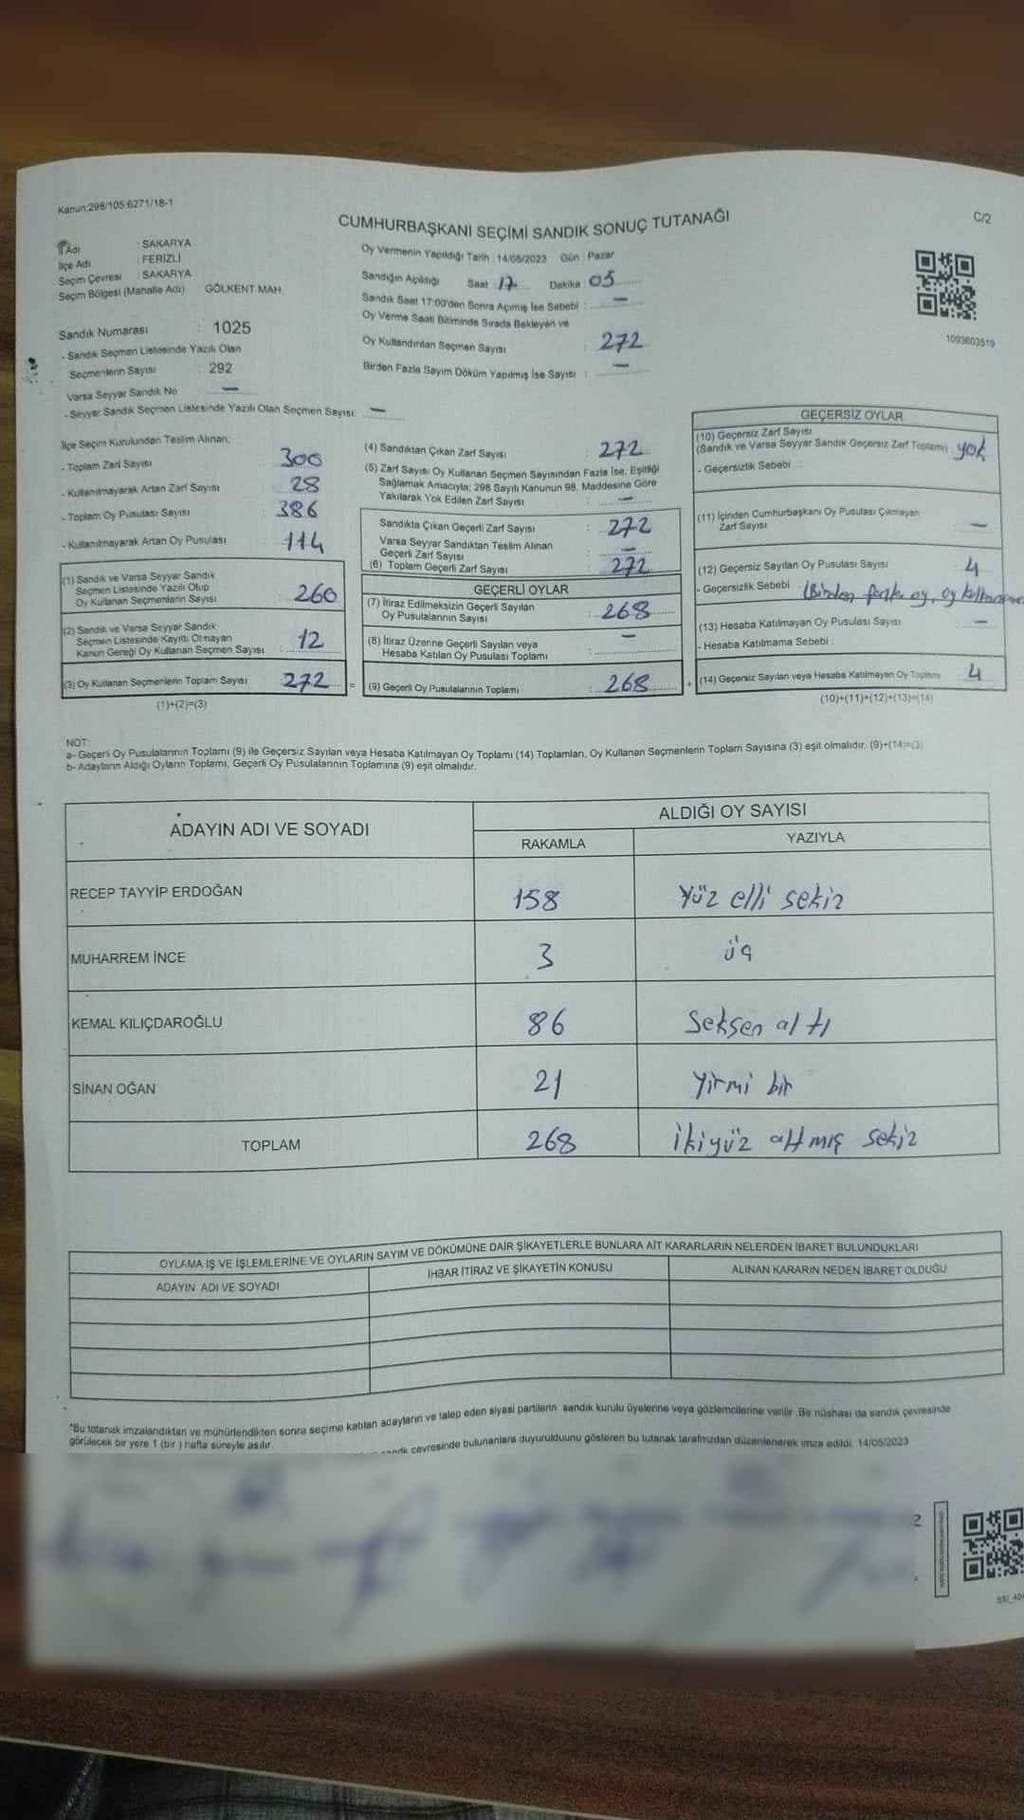 Kanun:298/105;6271/18-1
C/2
CUMHURBAŞKANI SEÇİMİ SANDIK SONUÇ TUTANAĞI
İl Adı : SAKARYA
İlçe Adı : FERİZLİ
Seçim Çevresi : SAKARYA
Seçim Bölgesi (Mahalle Adı) GÖLKENT MAH
Sandık Numarası : 1025
- Sandık Seçmen Listesinde Yazılı Olan
Seçmenlerin Sayısı : 292
Varsa Seyyar Sandık No —
- Seyyar Sandık Seçmen Listesinde Yazılı Olan Seçmen Sayısı: —
Oy Vermenin Yapıldığı Tarih : 14/05/2023 Gün : Pazar
Sandığın Açıldığı Saat : 17 Dakika : 05
Sandık Saat 17:00'den Sonra Açımış İse Sebebi : —
Oy Verme Saati Bitiminde Sırada Bekleyen ve
Oy Kullandırılan Seçmen Sayısı : 272
Birden Fazla Sayım Döküm Yapılmış İse Sayısı : —
1093603519
İlçe Seçim Kurulundan Teslim Alınan;
- Toplam Zarf Sayısı : 300
- Kullanılmayarak Artan Zarf Sayısı : 28
- Toplam Oy Pusulası Sayısı : 386
- Kullanılmayarak Artan Oy Pusulası : 114
(1) Sandık ve Varsa Seyyar Sandık
Seçmen Listesinde Yazılı Olup
Oy Kullanan Seçmenlerin Sayısı : 260
(2) Sandık ve Varsa Seyyar Sandık
Seçmen Listesinde Kayıtlı Olmayan
Kanun Gereği Oy Kullanan Seçmen Sayısı : 12
(3) Oy Kullanan Seçmenlerin Toplam Sayısı : 272 =
(1)+(2)=(3)
(4) Sandıktan Çıkan Zarf Sayısı : 272
(5) Zarf Sayısı Oy Kullanan Seçmen Sayısından Fazla İse, Eşitliği
Sağlamak Amacıyla; 298 Sayılı Kanunun 98. Maddesine Göre
Yakılarak Yok Edilen Zarf Sayısı : —
Sandıkta Çıkan Geçerli Zarf Sayısı : 272
Varsa Seyyar Sandıktan Teslim Alınan
Geçerli Zarf Sayısı : —
(6) Toplam Geçerli Zarf Sayısı : 272
GEÇERLİ OYLAR
(7) İtiraz Edilmeksizin Geçerli Sayılan
Oy Pusulalarının Sayısı : 268
(8) İtiraz Üzerine Geçerli Sayılan veya
Hesaba Katılan Oy Pusulası Toplamı : —
(9) Geçerli Oy Pusulalarının Toplamı : 268 +
GEÇERSİZ OYLAR
(10) Geçersiz Zarf Sayısı
(Sandık ve Varsa Seyyar Sandık Geçersiz Zarf Toplamı) yok
- Geçersizlik Sebebi :
(11) İçinden Cumhurbaşkanı Oy Pusulası Çıkmayan
Zarf Sayısı —
(12) Geçersiz Sayılan Oy Pusulası Sayısı 4
- Geçersizlik Sebebi (Birden fazla oy, oy
(13) Hesaba Katılmayan Oy Pusulası Sayısı —
- Hesaba Katılmama Sebebi :
(14) Geçersiz Sayılan veya Hesaba Katılmayan Oy Toplamı 4
(10)+(11)+(12)+(13)=(14)
NOT:
a- Geçerli Oy Pusulalarının Toplamı (9) ile Geçersiz Sayılan veya Hesaba Katılmayan Oy Toplamı (14) Toplamları, Oy Kullanan Seçmenlerin Toplam Sayısına (3) eşit olmalıdır. (9)+(14)=(3)
b- Adayların Aldığı Oyların Toplamı, Geçerli Oy Pusulalarının Toplamına (9) eşit olmalıdır.
ADAYIN ADI VE SOYADI
ALDIĞI OY SAYISI
RAKAMLA YAZIYLA
RECEP TAYYİP ERDOĞAN 158 Yüz elli sekiz
MUHARREM İNCE 3 üç
KEMAL KILIÇDAROĞLU 86 Seksen altı
SİNAN OĞAN 21 Yirmi bir
TOPLAM 268 İkiyüz altmış sekiz
OYLAMA İŞ VE İŞLEMLERİNE VE OYLARIN SAYIM VE DÖKÜMÜNE DAİR ŞİKAYETLERLE BUNLARA AİT KARARLARIN NELERDEN İBARET BULUNDUKLARI
ADAYIN ADI VE SOYADI İHBAR İTİRAZ VE ŞİKAYETİN KONUSU ALINAN KARARIN NEDEN İBARET OLDUĞU
"Bu tutanak imzalandıktan ve mühürlendikten sonra seçime katılan adayların ve talep eden siyasi partilerin sandık kurulu üyelerine veya gözlemcilerine verilir .Bir nüshası da sandık çevresinde
görülecek bir yere 1 (bir ) hafta süreyle asılır.
sandık çevresinde bulunanlara duyurulduğunu gösteren bu tutanak tarafımızdan düzenlenerek imza edildi. 14/05/2023